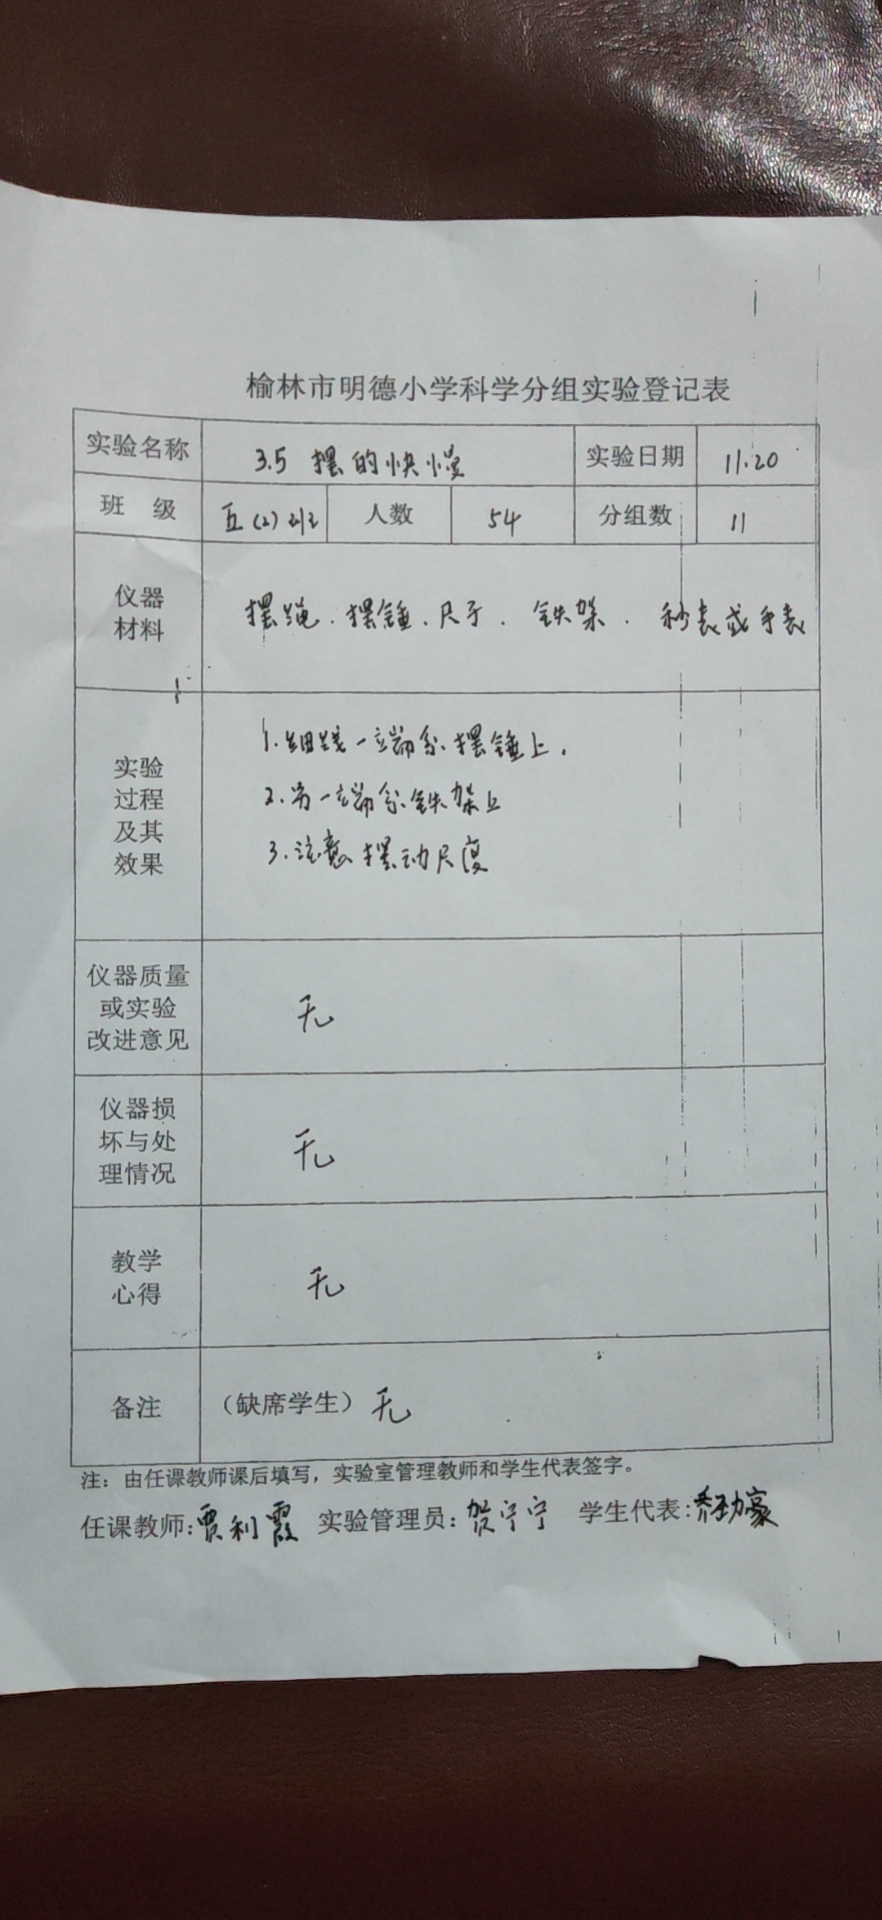 榆林市明德小学科学分组实验登记表
实验名称 3.5 摆的快慢 实验日期 11.20
班 级 五(2)班 人数 54 分组数 11
仪器
材料
摆绳、摆锤、尺子、铁架、秒表或手表
实验
过程
及其
效果
1.细线一端系摆锤上.
2.另一端系铁架上
3.注意摆动尺度
仪器质量
或实验
改进意见
无
仪器损
坏与处
理情况
无
教学
心得
无
备注 (缺席学生) 无
注：由任课教师课后填写，实验室管理教师和学生代表签字。
任课教师:贾利霞 实验管理员:贺宁宁 学生代表:乔劲豪